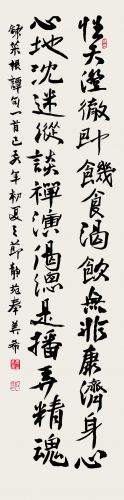 性天澄徹即饑食渴飲無非康濟身心
心地沈迷縱談禪演偈總是播弄精魂
錄菜根譚句一首己亥年初夏之節靜